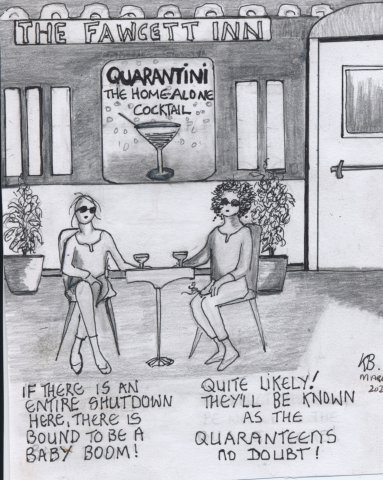 THE FAWCETT INN
QUARANTINI
THE HOME-ALONE
COCKTAIL
IF THERE IS AN
ENTIRE SHUTDOWN
HERE, THERE IS
BOUND TO BE A
BABY BOOM!
QUITE LIKELY!
THEY'LL BE KNOWN
AS THE
QUARANTEENS
NO DOUBT!
KB.